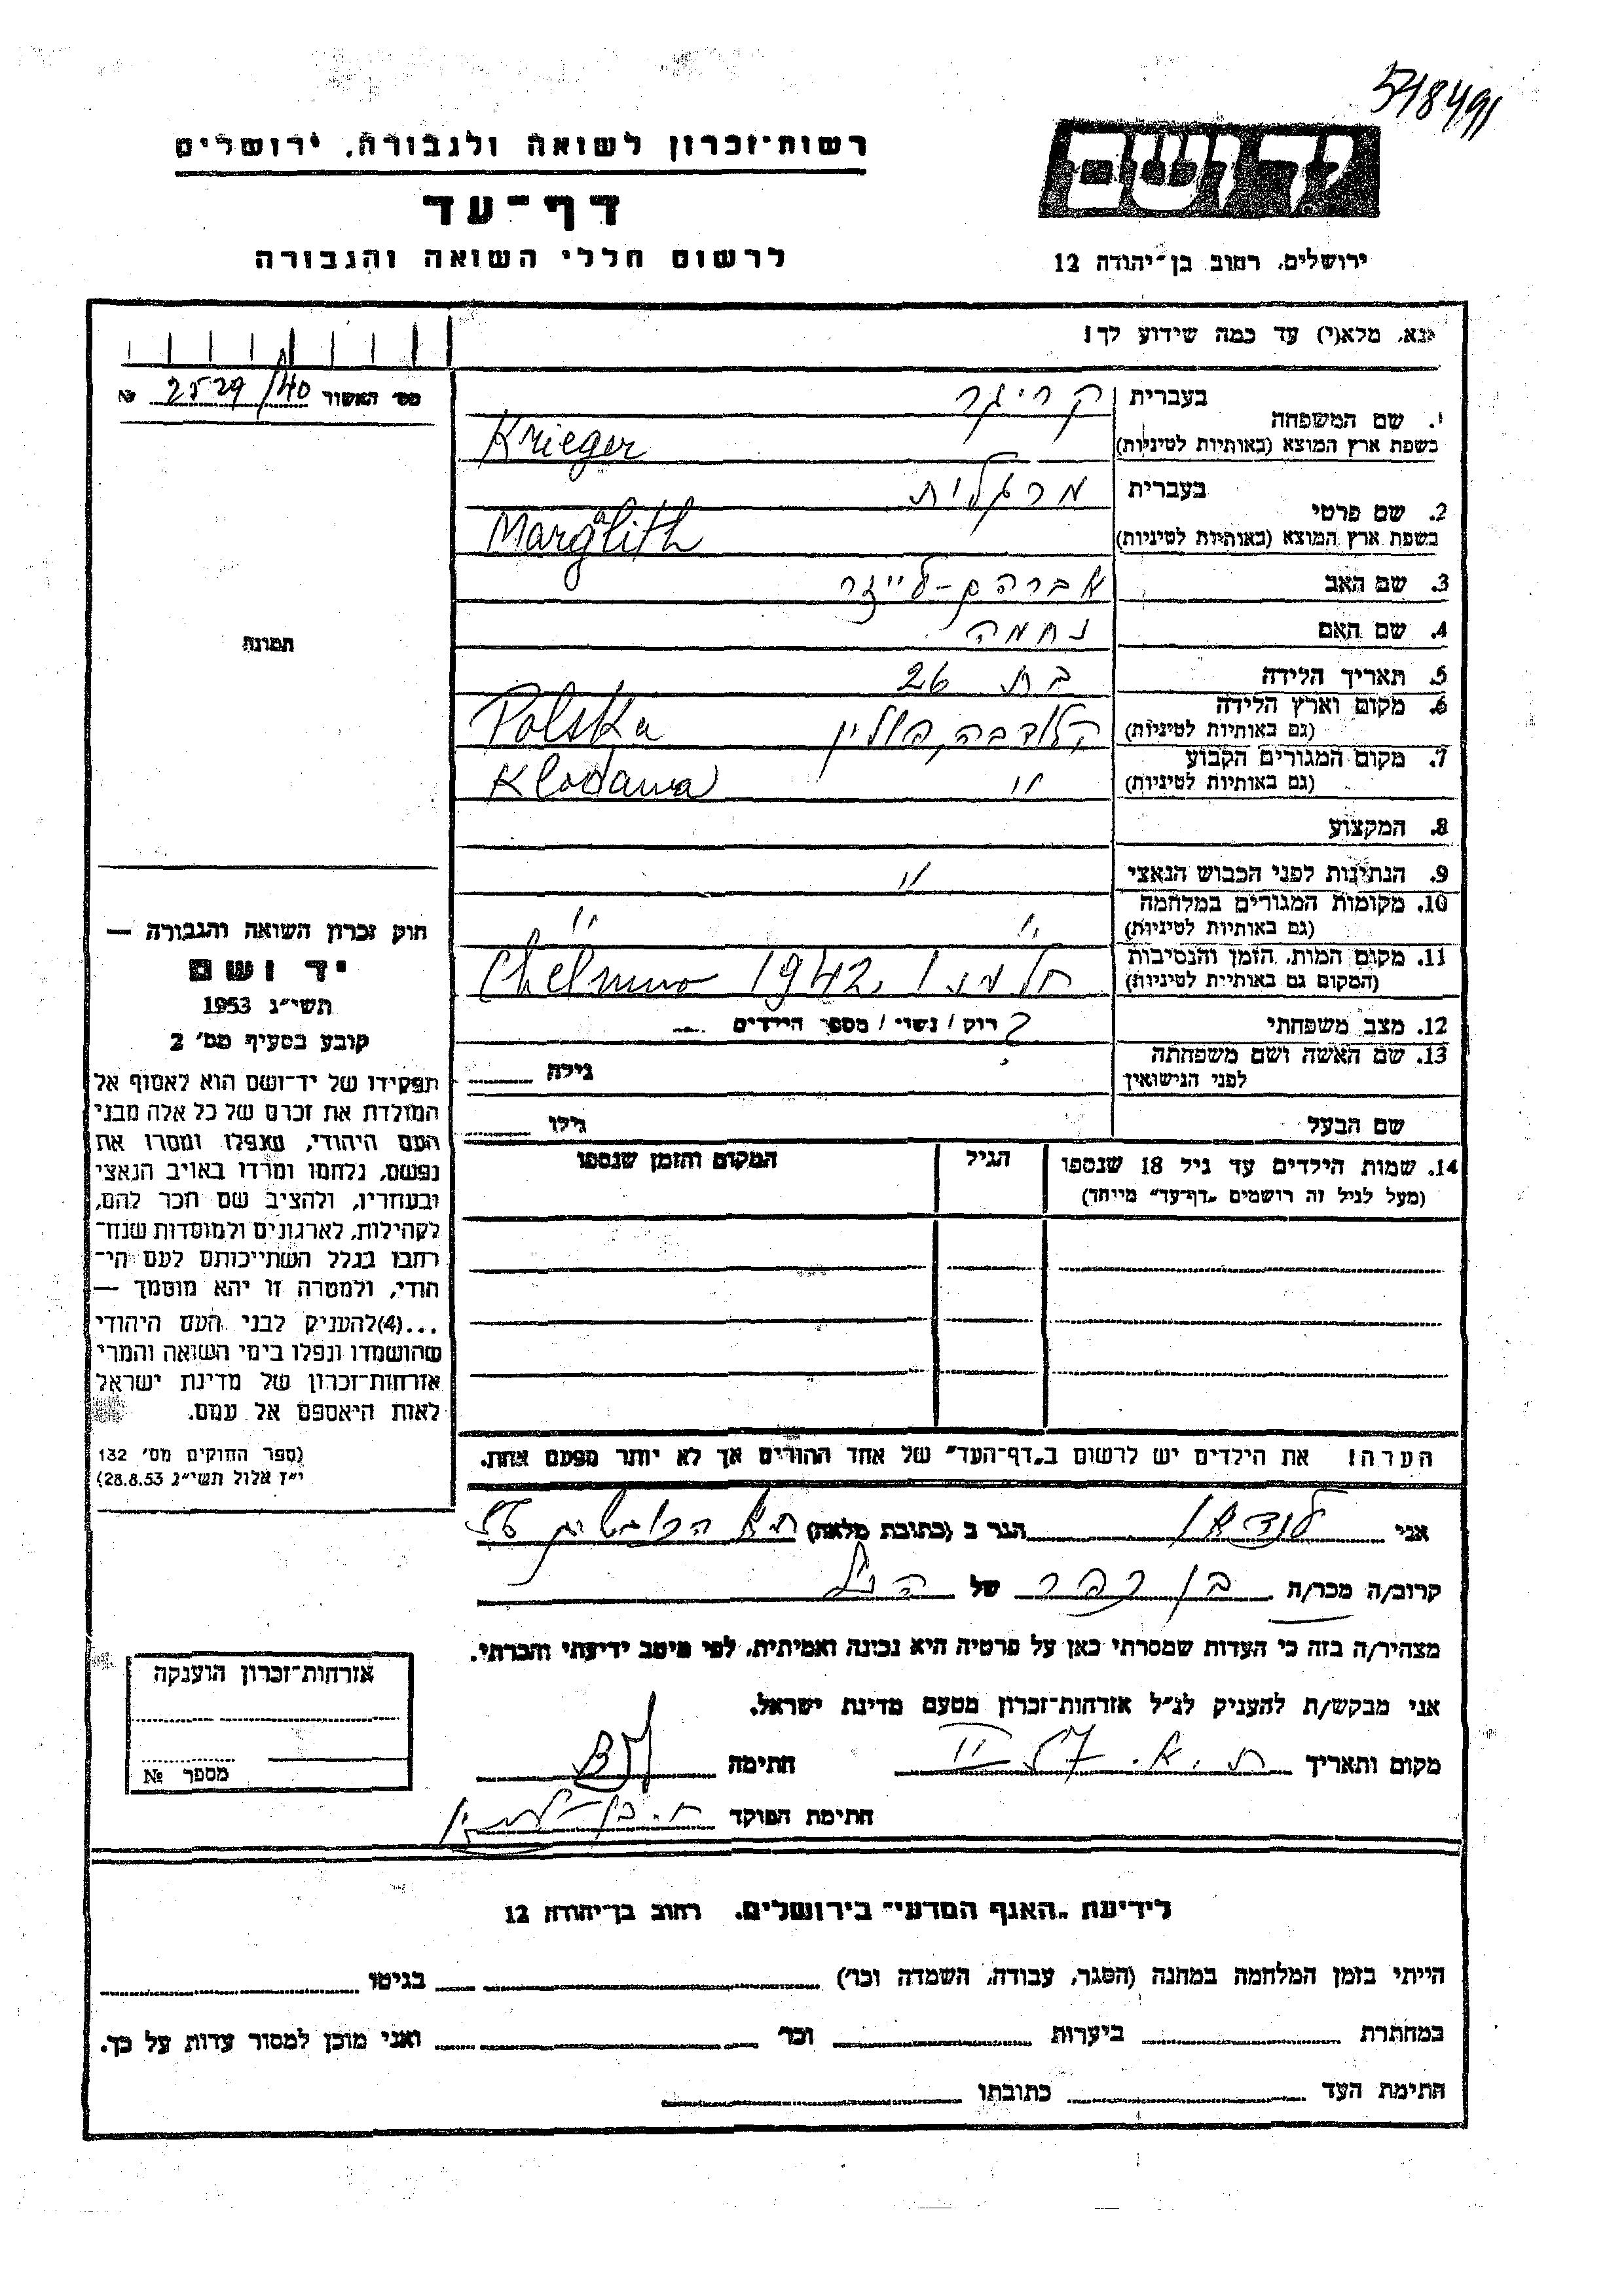 548491
יד ושם
ירושלים, רחוב בן־יהודה 12
רשות־זכרון לשואה ולגבורה, ירושלים
דף־עד
לרשום חללי השואה והגבורה
נא, מלא(י) עד כמה שידוע לך!
מס׳ האשור 2529/40 №
תמונה
חוק זכרון השואה והגבורה —
יד ושם
תשי״ג 1953
קובע בסעיף מס׳ 2
תפקידו של יד־ושם הוא לאסוף אל
המולדת את זכרם של כל אלה מבני
העם היהודי, שנפלו ומסרו את
נפשם, נלחמו ומרדו באויב הנאצי
ובעוזריו, ולהציב שם וזכר להם,
לקהילות, לארגונים ולמוסדות שנח־
רבו בגלל השתייכותם לעם הי־
הודי, ולמטרה זו יהא מוסמך —
...(4)להעניק לבני העם היהודי
שהושמדו ונפלו בימי השואה והמרי
אזרחות־זכרון של מדינת ישראל
לאות היאספם אל עמם.
(ספר החוקים מס׳ 132
י״ז אלול תשי״ג 28.8.53)
1. שם המשפחה בעברית קריגר
בשפת ארץ המוצא (באותיות לטיניות) Krieger
2. שם פרטי בעברית מרגלית
בשפת ארץ המוצא (באותיות לטיניות) Margalith
3. שם האב אברהם-לייזר
4. שם האם נחמה
5. תאריך הלידה בת 26
6. מקום וארץ הלידה (גם באותיות לטיניות) קלודבה, פולין Polska
7. מקום המגורים הקבוע (גם באותיות לטיניות) " Klodawa
8. המקצוע
9. הנתינות לפני הכבוש הנאצי "
10. מקומות המגורים במלחמה (גם באותיות לטיניות) " "
11. מקום המות, הזמן והנסיבות (המקום גם באותיות לטיניות) חלמנו 1942 Chelmno
12. מצב משפחתי רווק / נשוי / מספר הילדים ?
13. שם האשה ושם משפחתה לפני הנישואין גילה
שם הבעל גילו
14. שמות הילדים עד גיל 18 שנספו הגיל המקום והזמן שנספו
(מעל לגיל זה רושמים „דף־עד״ מיוחד)
הערה! את הילדים יש לרשום ב„דף־העד״ של אחד ההורים אך לא יותר מפעם אחת.
אני הגר ב (כתובת מלאה)
קרוב/ה מכר/ה של הנ״ל
מצהיר/ה בזה כי העדות שמסרתי כאן על פרטיה היא נכונה ואמיתית, לפי מיטב ידיעתי והכרתי.
אני מבקש/ת להעניק לנ״ל אזרחות־זכרון מטעם מדינת ישראל.
מקום ותאריך ת.א. חתימה
חתימת הפוקד
אזרחות־זכרון הוענקה
מספר №
לידיעת „האגף המדעי״ בירושלים, רחוב בן־יהודה 12
הייתי בזמן המלחמה במחנה (הסגר, עבודה, השמדה וכו׳) בגיטו
במחתרת ביערות וכו׳ ואני מוכן למסור עדות על כך.
חתימת העד כתובתו